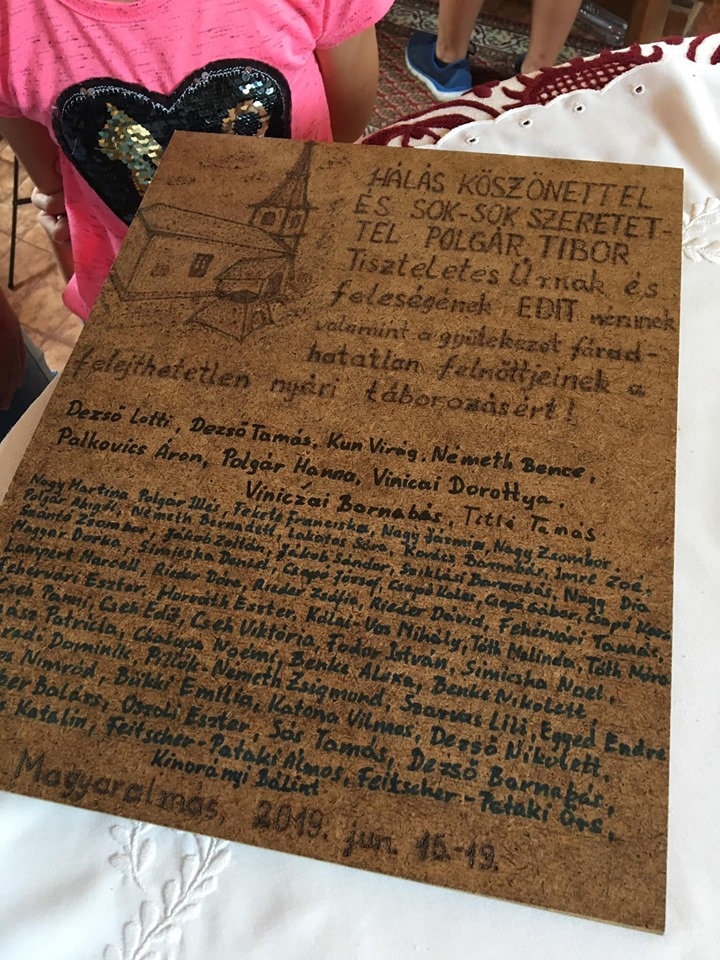 HÁLÁS KÖSZÖNETTEL
ÉS SOK-SOK SZERETET-
TEL POLGÁR TIBOR
Tiszteletes Úrnak és
feleségének EDIT néninek
valamint a gyülekezet fárad-
hatatlan felnőttjeinek a
felejthetetlen nyári táborozásért!
Dezső Lotti, Dezső Tamás, Kun Virág, Németh Bence,
Palkovics Áron, Polgár Hanna, Vinicai Dorottya,
Viniczai Barnabás, Titlé Tamás.
Nagy Martina, Polgár Illés, Fekete Franciska, Nagy Jázmin, Nagy Zsombor,
Polgár Abigél, Németh Bernadett, Lakatos Sára, Kovács Barnabás, Imre Zoé,
Szántó Zsombor, Jakab Zoltán, Jakab Sándor, Sziklási Barnabás, Nagy Dia
Magyar Dorka, Simicska Dániel, Csapó József, Csapó Gábor, Csapó
Lampert Marcell, Rieder Dóra, Rieder Zsófia, Rieder Dávid, Fehérvári Tamás,
Fehérvári Eszter, Horváth Eszter, Mihály, Tóth Melinda, Tóth Móra
Cseh Panni, Cseh Edit, Cseh Viktória, Fodor István, Simicska Noel,
Patricia, Noémi, Benke Alexa, Benke Nikolett,
Dominik, Pillók-Németh Zsigmond, Szarvas Lili, Egyed Endre
Nimród, Bükki Emília, Katona Vilmos, Dezső Nikolett,
Balázs, Eszter, Sós Tamás, Dezső Barnabás,
Katalin, Feitscher-Pataki Álmos, Feitscher-Pataki Örs,
Kinorányi Bálint
Magyaralmás, 2019. jun. 15-19.